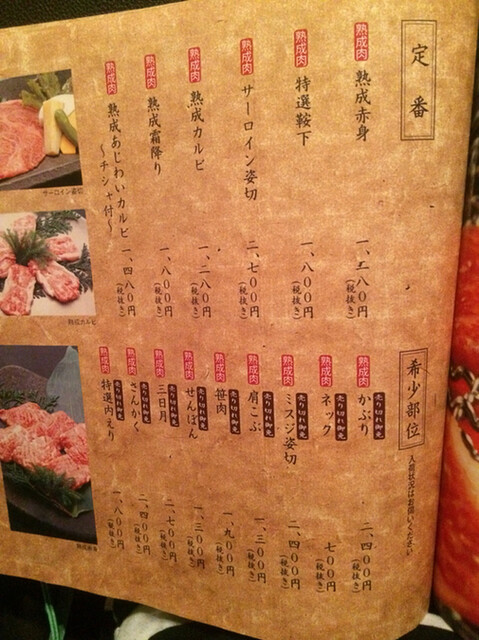 定番
熟成肉 熟成赤身 一、二八〇円(税抜き)
熟成肉 特選鞍下 一、八〇〇円(税抜き)
熟成肉 サーロイン姿切 二、七〇〇円(税抜き)
熟成肉 熟成カルビ 一、二八〇円(税抜き)
熟成肉 熟成霜降り 一、八〇〇円(税抜き)
熟成肉 熟成あじわいカルビ 一、四八〇円(税抜き)
〜チシャ付〜
希少部位 入荷状況はお伺いください
熟成肉 かぶり 売り切れ御免 二、四〇〇円(税抜き)
熟成肉 ネック 売り切れ御免 七〇〇円(税抜き)
熟成肉 ミスジ姿切 二、四〇〇円(税抜き)
熟成肉 肩こぶ 売り切れ御免 一、三〇〇円(税抜き)
熟成肉 笹肉 売り切れ御免 一、九〇〇円(税抜き)
熟成肉 せんぼん 売り切れ御免 一、三〇〇円(税抜き)
熟成肉 三日月 売り切れ御免 二、七〇〇円(税抜き)
熟成肉 さんかく 売り切れ御免 二、四〇〇円(税抜き)
熟成肉 特選内えり 売り切れ御免 一、八〇〇円(税抜き)
サーロイン姿切
熟成カルビ